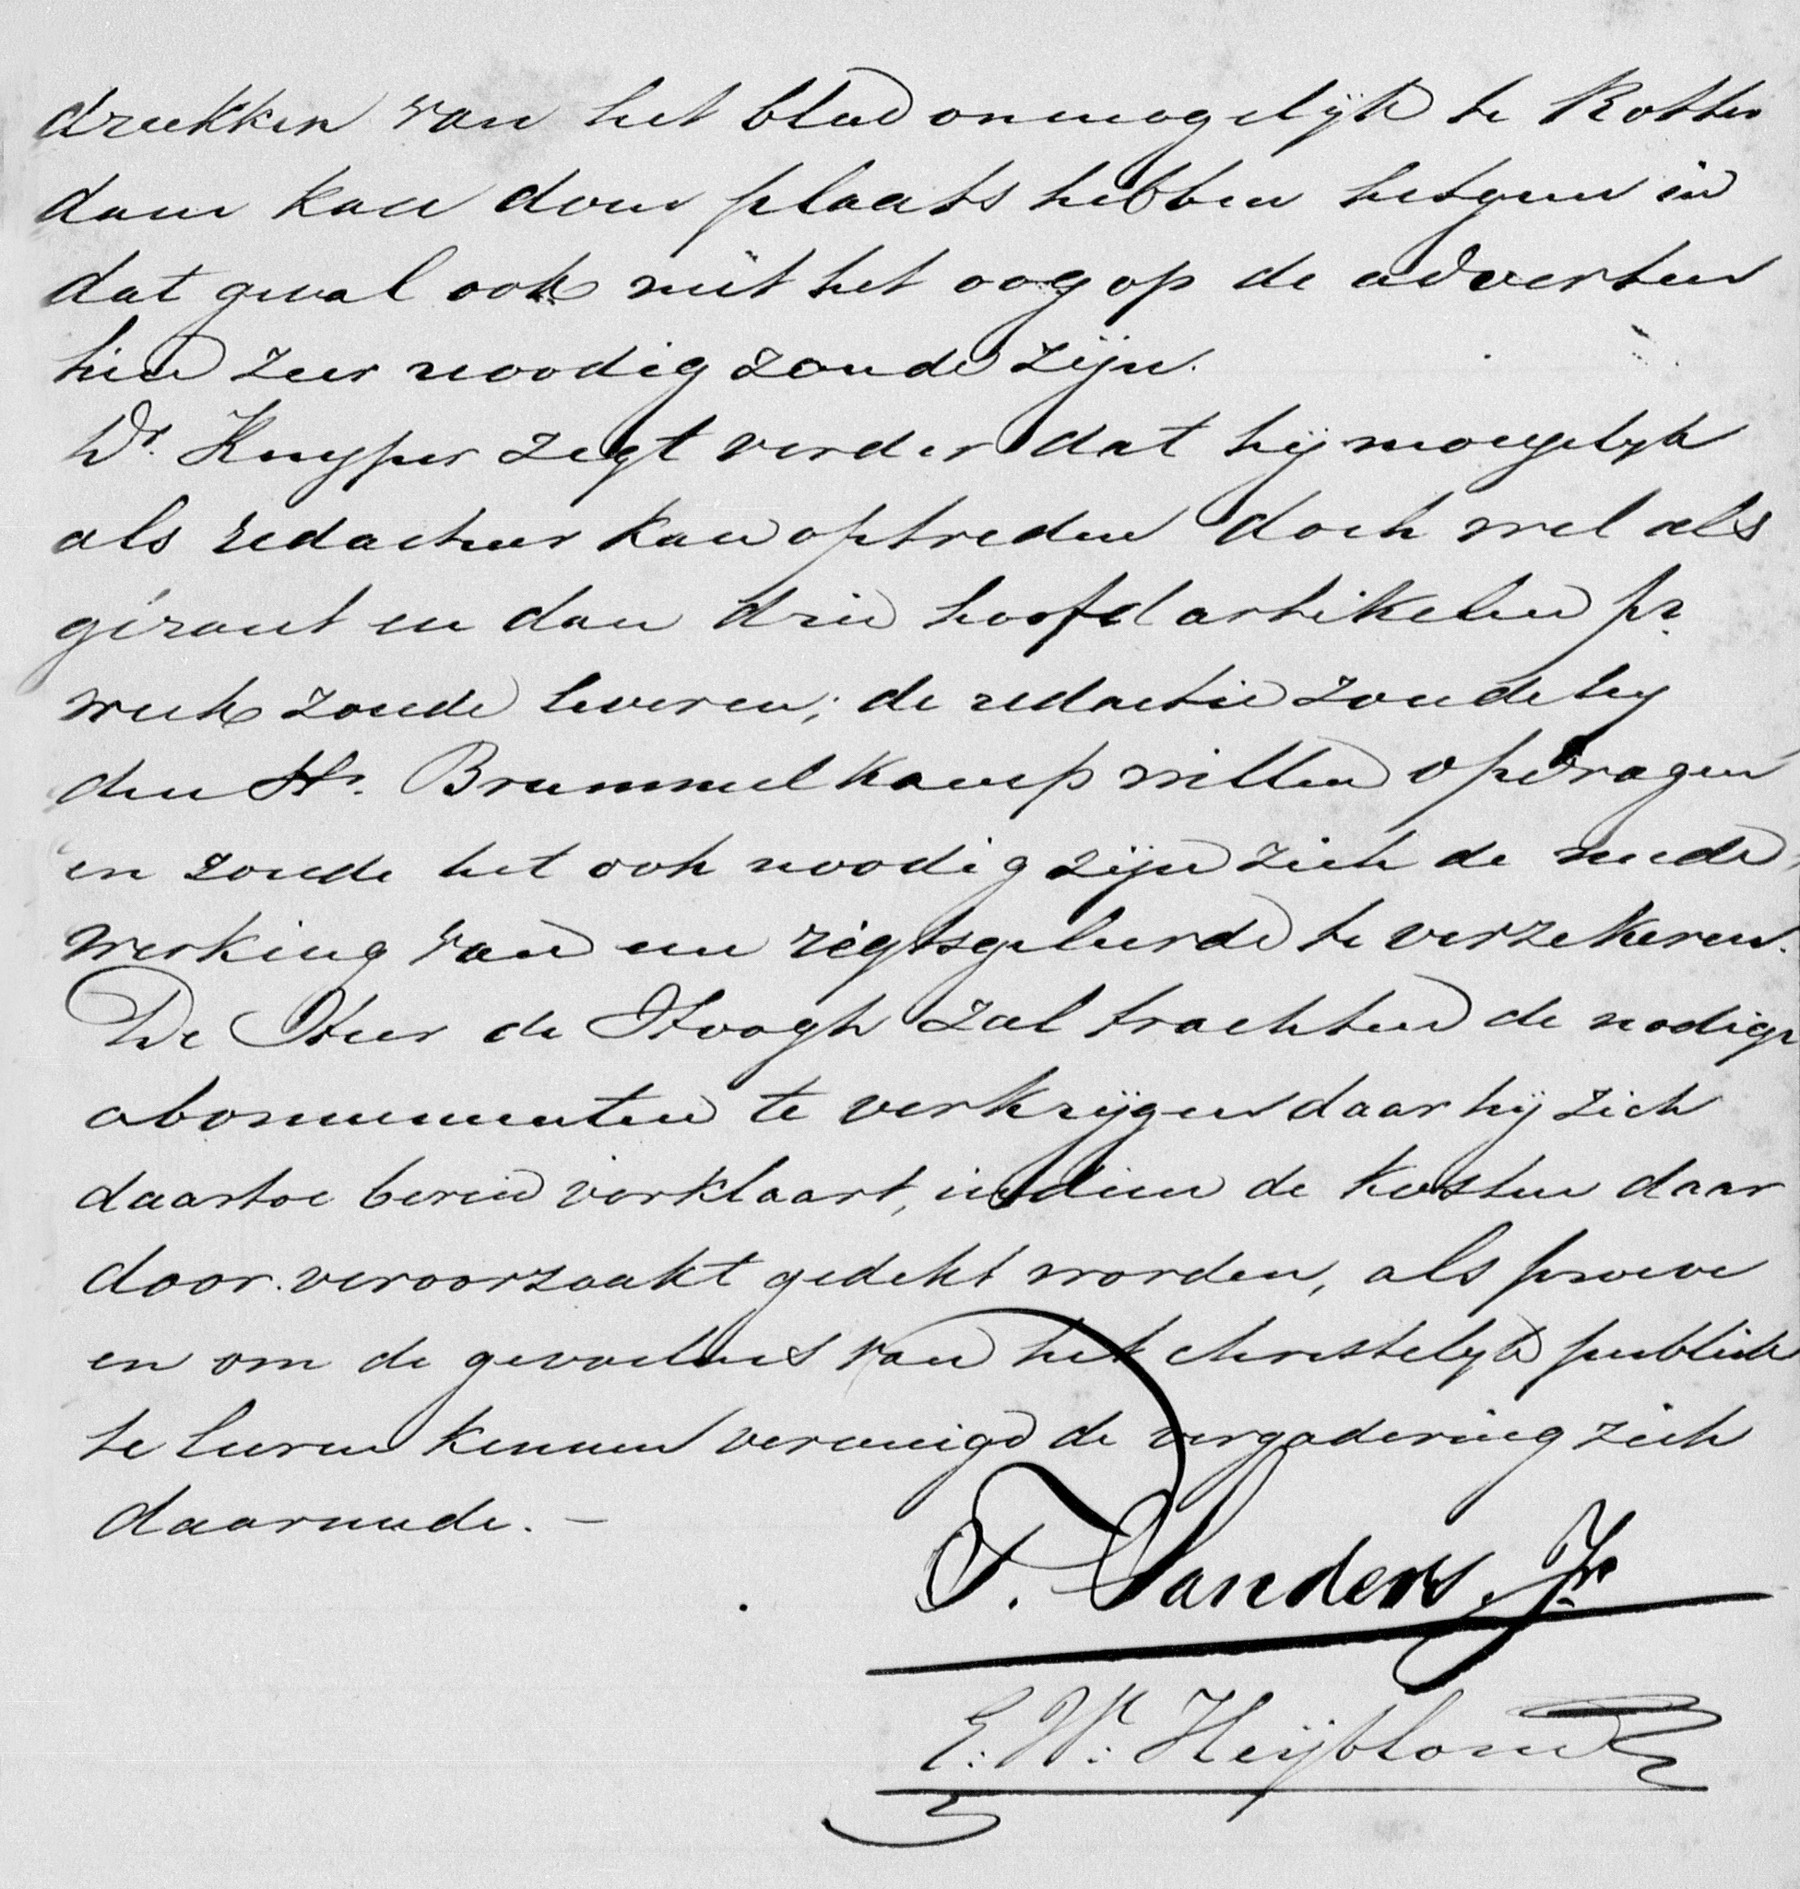 drukken van het blad onmogelijk te Rotter
dam kan doen plaats hebben hetgeen in
dat geval ook met het oog op de adverten
tien zeer noodig zoude zijn.
Dr. Kuyper zegt verder dat hij moeyelyk
als redacteur kan optreden doch wel als
gérant en dan drie hoofdartikelen pr.
week zoude leveren; de redactie zoude hy
den Hr. Brummelkamp willen opdragen
en zoude het ook noodig zijn zich de mede
werking van een regtsgeleerde te verzekeren.
De Heer de Hoogh zal trachten de nodige
abonnementen te verkrijgen daar hij zich
daartoe bereid verklaart, indien de kosten daar
door veroorzaakt gedekt worden, als proeve
en om de gevoelens van het christelyk publiek
te leeren kennen vereenigd de vergadering zich
daarmede. —
T. Sanders Jr.
E. W. Heijblom